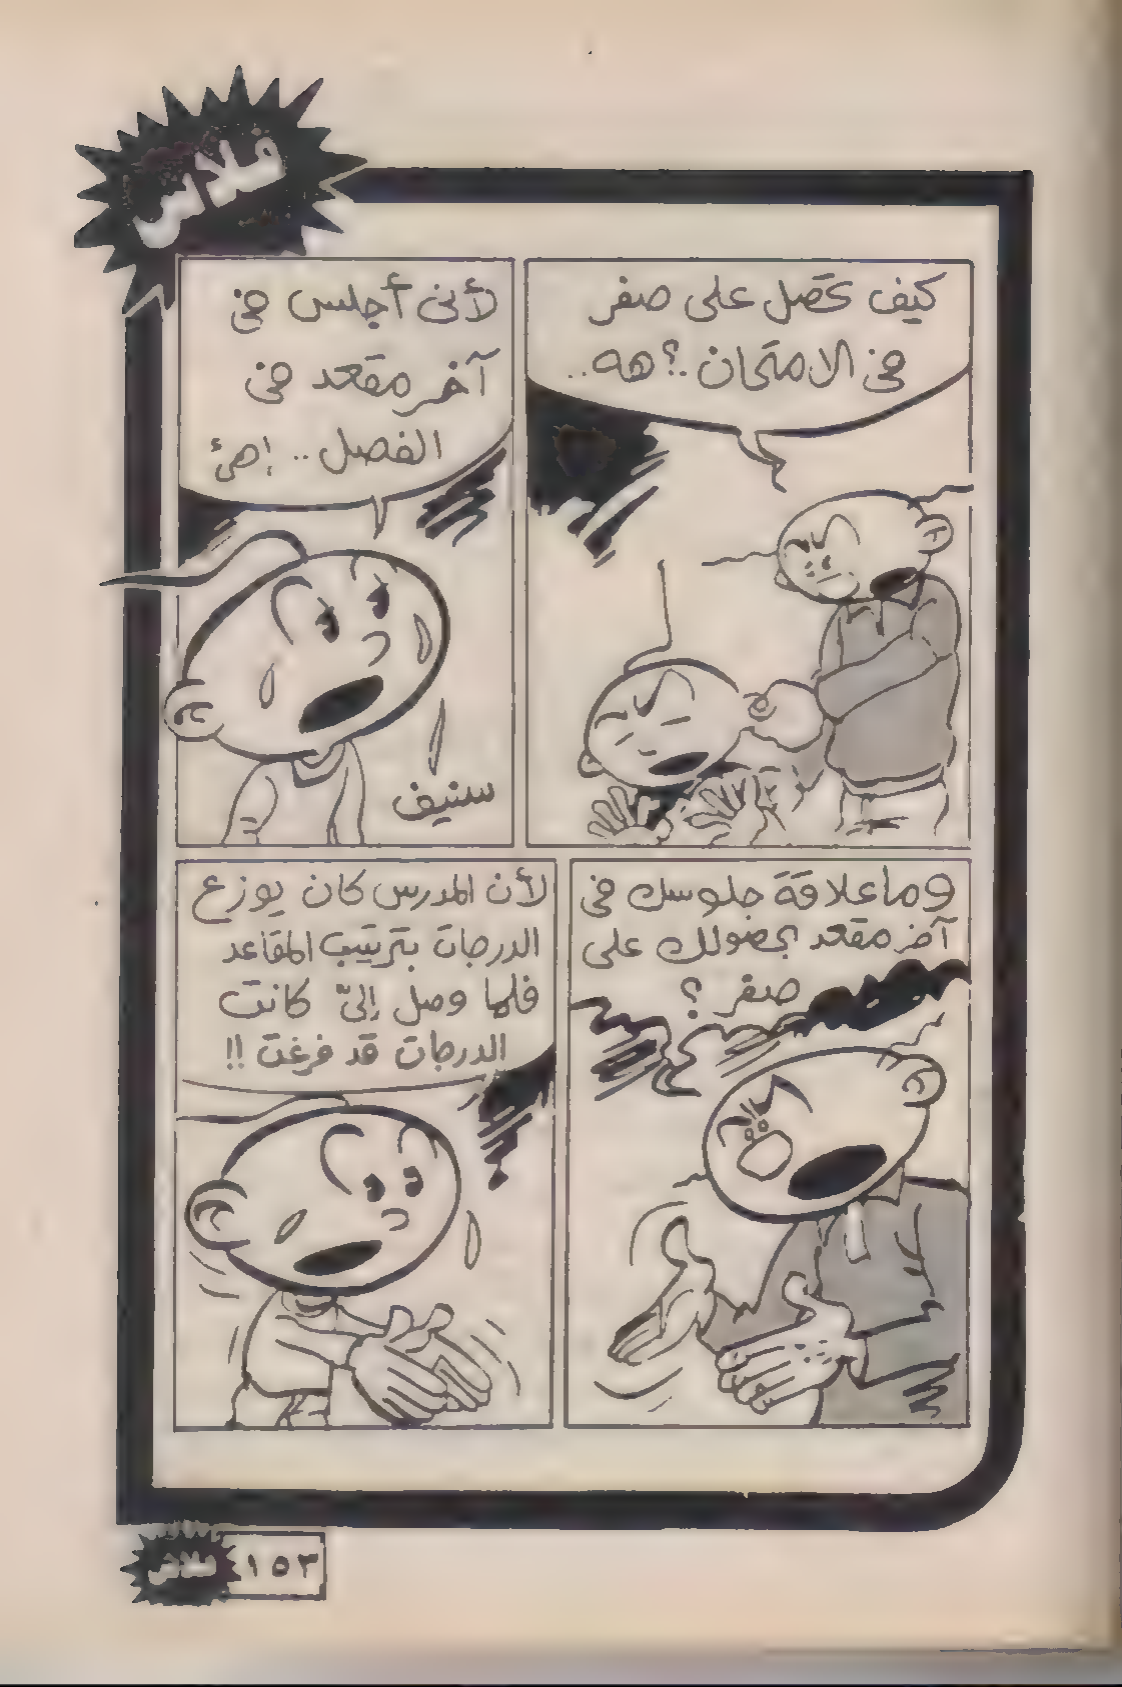 فلاش
كيف تحصل على صفر
فى الامتحان.؟ هه..
لأنى أجلس فى
آخر مقعد فى
الفصل.. إهئ
سنيف
وما علاقة جلوسك فى
آخر مقعد بحصولك على
صفر ؟
لأن المدرس كان يوزع
الدرجات بترتيب المقاعد
فلما وصل إلىّ كانت
الدرجات قد فرغت !!
فلاش
١٥٣